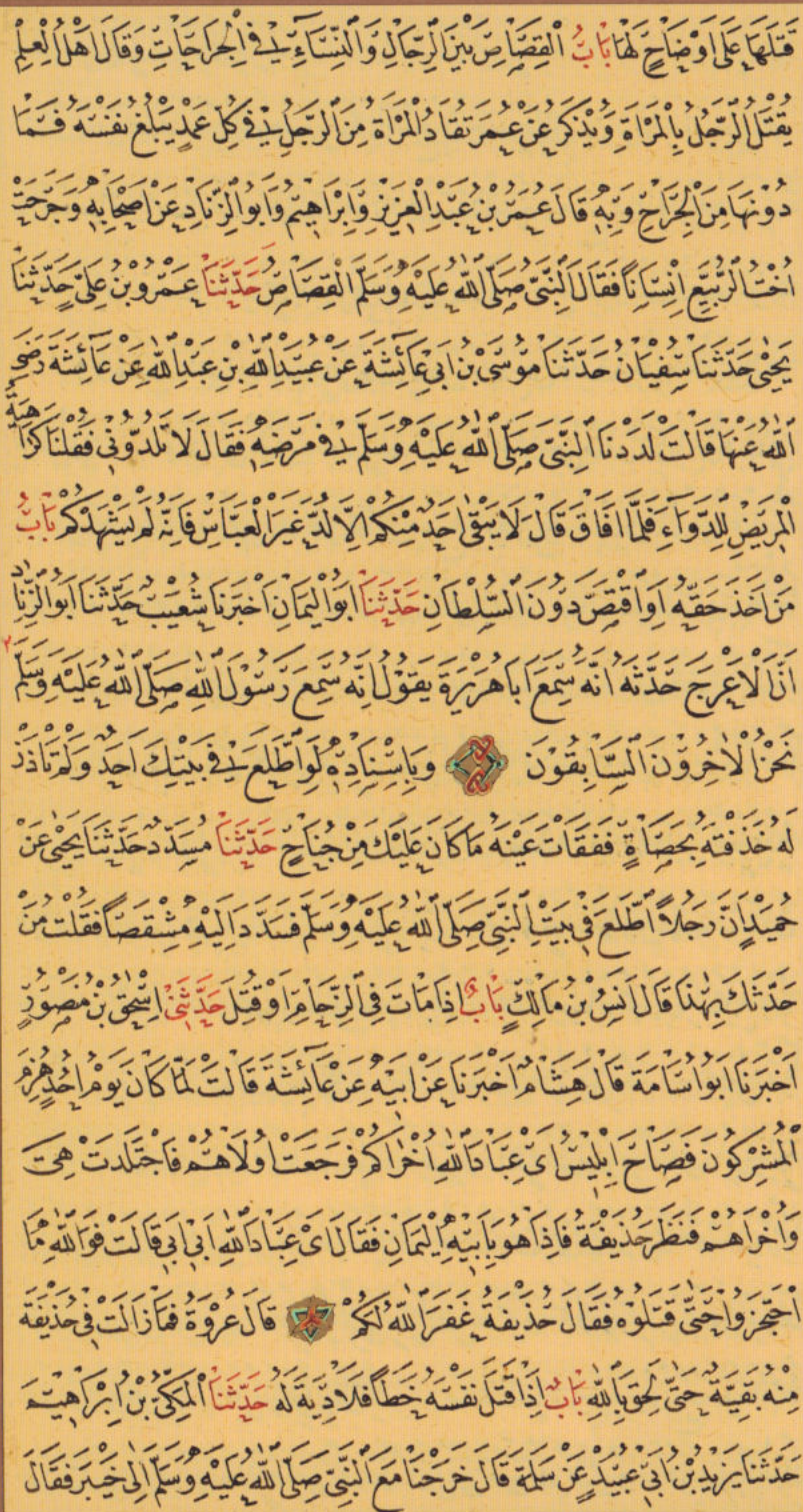 قَتَلَهَا عَلَى اَوْضَاحٍ لَهَا بَابُ الْقِصَاصِ بَيْنَ الرِّجَالِ وَالنِّسَاءِ فِي الْجِرَاحَاتِ وَقَالَ اَهْلُ الْعِلْمِ
يُقْتَلُ الرَّجُلُ بِالْمَرْاَةِ وَيُذْكَرُ عَنْ عُمَرَ تُقَادُ الْمَرْاَةُ مِنَ الرَّجُلِ فِي كُلِّ عَمْدٍ يَبْلُغُ نَفْسَهُ فَمَا
دُونَهَا مِنَ الْجِرَاحِ وَبِهِ قَالَ عُمَرُ بْنُ عَبْدِ الْعَزِيزِ وَاِبْرَاهِيمُ وَاَبُو الزِّنَادِ عَنْ اَصْحَابِهِ وَجَرَحَتْ
اُخْتُ الرُّبَيِّعِ اِنْسَانًا فَقَالَ النَّبِيُّ صَلَّى اللّٰهُ عَلَيْهِ وَسَلَّمَ الْقِصَاصُ حَدَّثَنَا عَمْرُو بْنُ عَلِيٍّ حَدَّثَنَا
يَحْيٰى حَدَّثَنَا سُفْيَانُ حَدَّثَنَا مُوسَى بْنُ اَبِي عَائِشَةَ عَنْ عُبَيْدِ اللّٰهِ بْنِ عَبْدِ اللّٰهِ عَنْ عَائِشَةَ رَضِيَ
اللّٰهُ عَنْهَا قَالَتْ لَدَدْنَا النَّبِيَّ صَلَّى اللّٰهُ عَلَيْهِ وَسَلَّمَ فِي مَرَضِهِ فَقَالَ لَا تَلُدُّونِي فَقُلْنَا كَرَاهِيَةُ
الْمَرِيضِ لِلدَّوَاءِ فَلَمَّا اَفَاقَ قَالَ لَا يَبْقٰى اَحَدٌ مِنْكُمْ اِلَّا لُدَّ غَيْرَ الْعَبَّاسِ فَاِنَّهُ لَمْ يَشْهَدْكُمْ بَابُ
مَنْ اَخَذَ حَقَّهُ اَوِ اقْتَصَّ دُونَ السُّلْطَانِ حَدَّثَنَا اَبُو الْيَمَانِ اَخْبَرَنَا شُعَيْبٌ حَدَّثَنَا اَبُو الزِّنَادِ
اَنَّ الْاَعْرَجَ حَدَّثَهُ اَنَّهُ سَمِعَ اَبَا هُرَيْرَةَ يَقُولُ اِنَّهُ سَمِعَ رَسُولَ اللّٰهِ صَلَّى اللّٰهُ عَلَيْهِ وَسَلَّمَ
نَحْنُ الْاٰخِرُونَ السَّابِقُونَ وَبِاِسْنَادِهِ لَوِ اطَّلَعَ فِي بَيْتِكَ اَحَدٌ وَلَمْ تَأْذَنْ
لَهُ خَذَفْتَهُ بِحَصَاةٍ فَفَقَأْتَ عَيْنَهُ مَا كَانَ عَلَيْكَ مِنْ جُنَاحٍ حَدَّثَنَا مُسَدَّدٌ حَدَّثَنَا يَحْيٰى عَنْ
حُمَيْدٍ اَنَّ رَجُلًا اطَّلَعَ فِي بَيْتِ النَّبِيِّ صَلَّى اللّٰهُ عَلَيْهِ وَسَلَّمَ فَسَدَّدَ اِلَيْهِ مِشْقَصًا فَقُلْتُ مَنْ
حَدَّثَكَ بِهٰذَا قَالَ اَنَسُ بْنُ مَالِكٍ بَابٌ اِذَا مَاتَ فِي الزِّحَامِ اَوْ قُتِلَ حَدَّثَنِي اِسْحٰقُ بْنُ مَنْصُورٍ
اَخْبَرَنَا اَبُو اُسَامَةَ قَالَ هِشَامٌ اَخْبَرَنَا عَنْ اَبِيهِ عَنْ عَائِشَةَ قَالَتْ لَمَّا كَانَ يَوْمُ اُحُدٍ هُزِمَ
الْمُشْرِكُونَ فَصَاحَ اِبْلِيسُ اَيْ عِبَادَ اللّٰهِ اُخْرَاكُمْ فَرَجَعَتْ اُولَاهُمْ فَاجْتَلَدَتْ هِيَ
وَاُخْرَاهُمْ فَنَظَرَ حُذَيْفَةُ فَاِذَا هُوَ بِاَبِيهِ الْيَمَانِ فَقَالَ اَيْ عِبَادَ اللّٰهِ اَبِي اَبِي قَالَتْ فَوَاللّٰهِ مَا
احْتَجَزُوا حَتّٰى قَتَلُوهُ فَقَالَ حُذَيْفَةُ غَفَرَ اللّٰهُ لَكُمْ قَالَ عُرْوَةُ فَمَا زَالَتْ فِي حُذَيْفَةَ
مِنْهُ بَقِيَّةٌ حَتّٰى لَحِقَ بِاللّٰهِ بَابٌ اِذَا قَتَلَ نَفْسَهُ خَطَأً فَلَا دِيَةَ لَهُ حَدَّثَنَا الْمَكِّيُّ بْنُ اِبْرَاهِيمَ
حَدَّثَنَا يَزِيدُ بْنُ اَبِي عُبَيْدٍ عَنْ سَلَمَةَ قَالَ خَرَجْنَا مَعَ النَّبِيِّ صَلَّى اللّٰهُ عَلَيْهِ وَسَلَّمَ اِلٰى خَيْبَرَ فَقَالَ